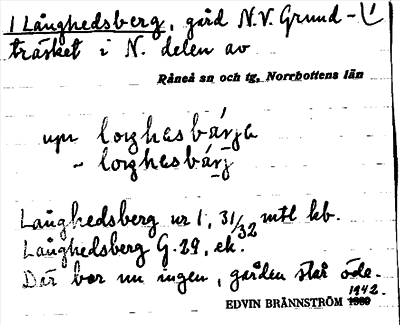 1 Långhedsberg, gård N.V. Grund-
träsket i N. delen av
Råneå sn och tg, Norrbottens län
upr loŋhesbárje
~ loŋhesbárj
Långhedsberg nr 1, 31/32 mtl kb.
Långhedsberg G.29, ek.
Där bor nu ingen, gården står öde.
1942.
EDVIN BRÄNNSTRÖM 1939